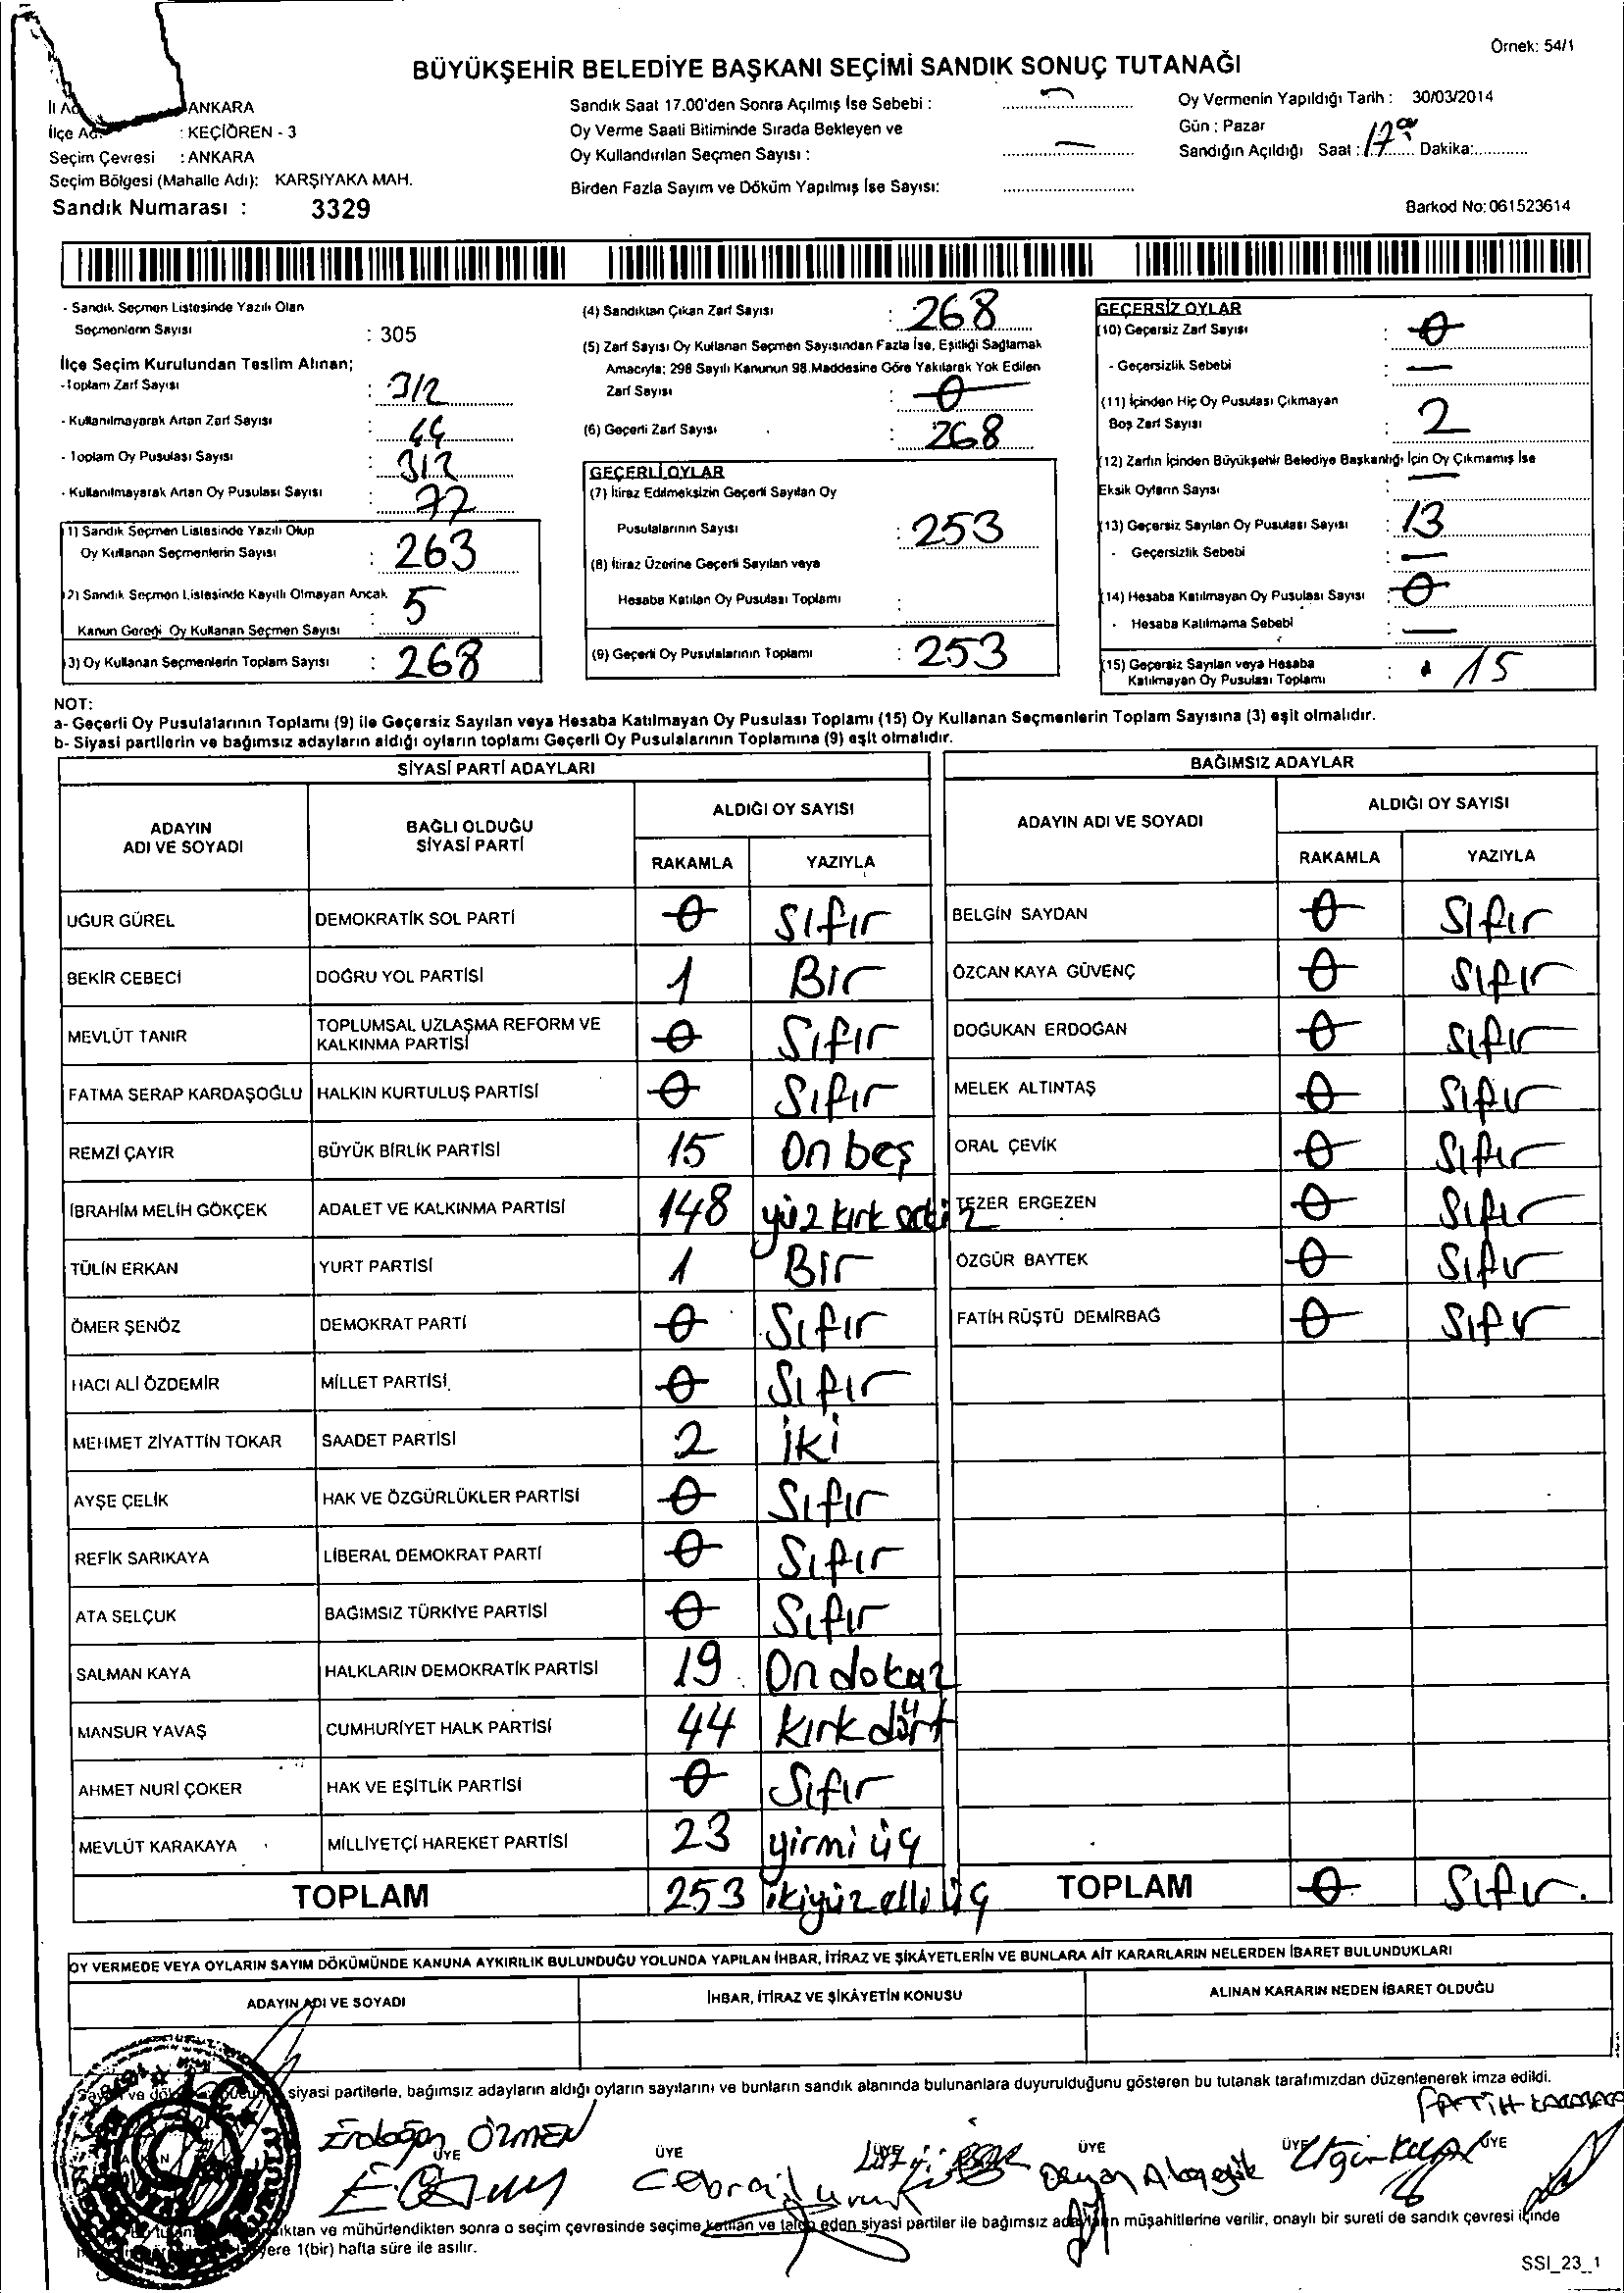 Örnek: 54/1
BÜYÜKŞEHİR BELEDİYE BAŞKANI SEÇİMİ SANDIK SONUÇ TUTANAĞI
İl Ad ANKARA
İlçe Ad : KEÇİÖREN - 3
Seçim Çevresi : ANKARA
Seçim Bölgesi (Mahalle Adı): KARŞIYAKA MAH.
Sandık Numarası : 3329
Sandık Saat 17.00'den Sonra Açılmış İse Sebebi :
Oy Verme Saati Bitiminde Sırada Bekleyen ve
Oy Kullandırılan Seçmen Sayısı : —
Birden Fazla Sayım ve Döküm Yapılmış İse Sayısı:
Oy Vermenin Yapıldığı Tarih : 30/03/2014
Gün : Pazar
Sandığın Açıldığı Saat : 17.00 Dakika:
Barkod No: 061523614
- Sandık Seçmen Listesinde Yazılı Olan
Seçmenlerin Sayısı : 305
İlçe Seçim Kurulundan Teslim Alınan;
- Toplam Zarf Sayısı : 312
- Kullanılmayarak Artan Zarf Sayısı : 44
- Toplam Oy Pusulası Sayısı : 312
- Kullanılmayarak Artan Oy Pusulası Sayısı : 77
1) Sandık Seçmen Listesinde Yazılı Olup
Oy Kullanan Seçmenlerin Sayısı : 263
2) Sandık Seçmen Listesinde Kayıtlı Olmayan Ancak
Kanun Gereği Oy Kullanan Seçmen Sayısı : 5
3) Oy Kullanan Seçmenlerin Toplam Sayısı : 268
(4) Sandıktan Çıkan Zarf Sayısı : 268
(5) Zarf Sayısı Oy Kullanan Seçmen Sayısından Fazla İse, Eşitliği Sağlamak
Amacıyla; 298 Sayılı Kanunun 98.Maddesine Göre Yakılarak Yok Edilen
Zarf Sayısı : 0
(6) Geçerli Zarf Sayısı : 268
GEÇERLİ OYLAR
(7) İtiraz Edilmeksizin Geçerli Sayılan Oy
Pusulalarının Sayısı : 253
(8) İtiraz Üzerine Geçerli Sayılan veya
Hesaba Katılan Oy Pusulası Toplamı :
(9) Geçerli Oy Pusulalarının Toplamı : 253
GEÇERSİZ OYLAR
(10) Geçersiz Zarf Sayısı : 0
- Geçersizlik Sebebi : —
(11) İçinden Hiç Oy Pusulası Çıkmayan
Boş Zarf Sayısı : 2
(12) Zarfın İçinden Büyükşehir Belediye Başkanlığı İçin Oy Çıkmamış İse
Eksik Oyların Sayısı : —
(13) Geçersiz Sayılan Oy Pusulası Sayısı : 13
- Geçersizlik Sebebi : —
(14) Hesaba Katılmayan Oy Pusulası Sayısı : 0
- Hesaba Katılmama Sebebi : —
(15) Geçersiz Sayılan veya Hesaba
Katılmayan Oy Pusulası Toplamı : 15
NOT:
a- Geçerli Oy Pusulalarının Toplamı (9) ile Geçersiz Sayılan veya Hesaba Katılmayan Oy Pusulası Toplamı (15) Oy Kullanan Seçmenlerin Toplam Sayısına (3) eşit olmalıdır.
b- Siyasi partilerin ve bağımsız adayların aldığı oyların toplamı Geçerli Oy Pusulalarının Toplamına (9) eşit olmalıdır.
SİYASİ PARTİ ADAYLARI
ADAYIN ADI VE SOYADI BAĞLI OLDUĞU SİYASİ PARTİ ALDIĞI OY SAYISI
RAKAMLA YAZIYLA
UĞUR GÜREL DEMOKRATİK SOL PARTİ 0 Sıfır
BEKİR CEBECİ DOĞRU YOL PARTİSİ 1 Bir
MEVLÜT TANIR TOPLUMSAL UZLAŞMA REFORM VE KALKINMA PARTİSİ 0 Sıfır
FATMA SERAP KARDAŞOĞLU HALKIN KURTULUŞ PARTİSİ 0 Sıfır
REMZİ ÇAYIR BÜYÜK BİRLİK PARTİSİ 15 On beş
İBRAHİM MELİH GÖKÇEK ADALET VE KALKINMA PARTİSİ 148 yüz kırk sekiz
TÜLİN ERKAN YURT PARTİSİ 1 Bir
ÖMER ŞENÖZ DEMOKRAT PARTİ 0 Sıfır
HACI ALİ ÖZDEMİR MİLLET PARTİSİ 0 Sıfır
MEHMET ZİYATTİN TOKAR SAADET PARTİSİ 2 iki
AYŞE ÇELİK HAK VE ÖZGÜRLÜKLER PARTİSİ 0 Sıfır
REFİK SARIKAYA LİBERAL DEMOKRAT PARTİ 0 Sıfır
ATA SELÇUK BAĞIMSIZ TÜRKİYE PARTİSİ 0 Sıfır
SALMAN KAYA HALKLARIN DEMOKRATİK PARTİSİ 19 On dokuz
MANSUR YAVAŞ CUMHURİYET HALK PARTİSİ 44 kırk dört
AHMET NURİ ÇOKER HAK VE EŞİTLİK PARTİSİ 0 Sıfır
MEVLÜT KARAKAYA MİLLİYETÇİ HAREKET PARTİSİ 23 yirmi üç
TOPLAM 253 ikiyüz elli üç
BAĞIMSIZ ADAYLAR
ADAYIN ADI VE SOYADI ALDIĞI OY SAYISI
RAKAMLA YAZIYLA
BELGİN SAYDAN 0 Sıfır
ÖZCAN KAYA GÜVENÇ 0 Sıfır
DOĞUKAN ERDOĞAN 0 Sıfır
MELEK ALTINTAŞ 0 Sıfır
ORAL ÇEVİK 0 Sıfır
TEZER ERGEZEN 0 Sıfır
ÖZGÜR BAYTEK 0 Sıfır
FATİH RÜŞTÜ DEMİRBAĞ 0 Sıfır
TOPLAM 0 Sıfır.
OY VERMEDE VEYA OYLARIN SAYIM DÖKÜMÜNDE KANUNA AYKIRILIK BULUNDUĞU YOLUNDA YAPILAN İHBAR, İTİRAZ VE ŞİKÂYETLERİN VE BUNLARA AİT KARARLARIN NELERDEN İBARET BULUNDUKLARI
ADAYIN ADI VE SOYADI İHBAR, İTİRAZ VE ŞİKÂYETİN KONUSU ALINAN KARARIN NEDEN İBARET OLDUĞU
siyasi partilerle, bağımsız adayların aldığı oyların sayılarını ve bunların sandık alanında bulunanlara duyurulduğunu gösteren bu tutanak tarafımızdan düzenlenerek imza edildi.
FATİH
Erdoğan ÖZMEN
ÜYE ÜYE ÜYE ÜYE ÜYE ÜYE
Cebrail
ve mühürlendikten sonra o seçim çevresinde seçime katılan ve talep eden siyasi partiler ile bağımsız adayların müşahitlerine verilir, onaylı bir sureti de sandık çevresi içinde
yere 1(bir) hafta süre ile asılır.
SSI_23_1